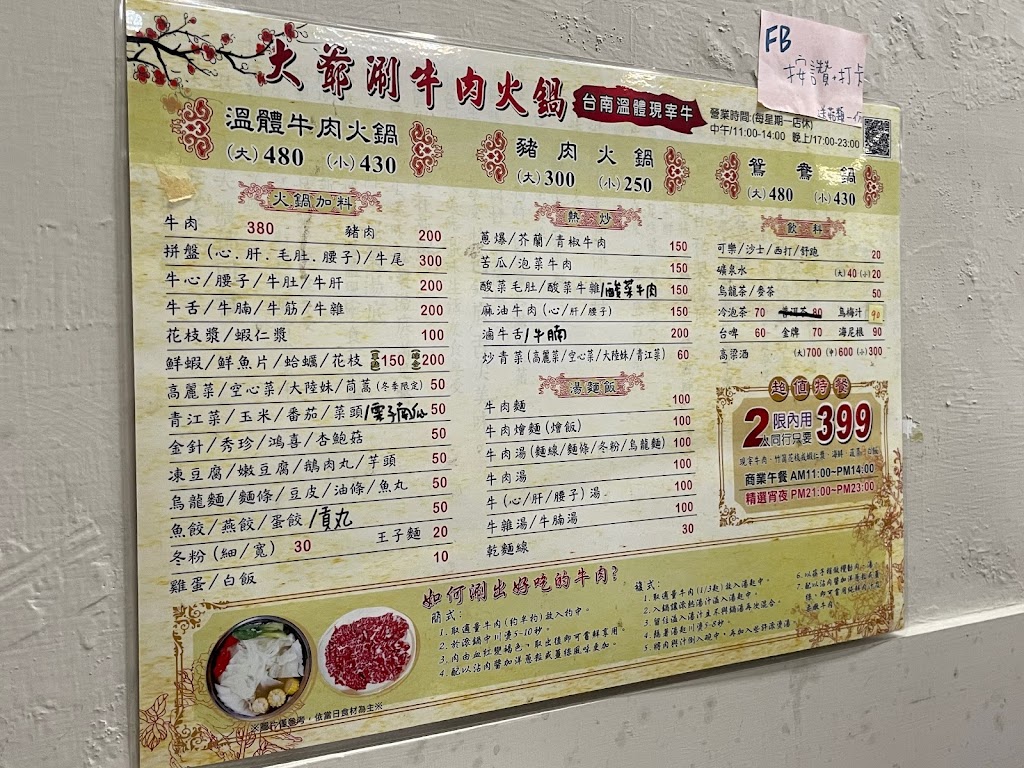 FB
按讚+打卡
大爺涮牛肉火鍋
台南溫體現宰牛
營業時間:(每星期一店休)
中午/11:00-14:00 晚上/17:00-23:00
溫體牛肉火鍋
(大)480 (小)430
豬肉火鍋
(大)300 (小)250
鴛鴦鍋
(大)480 (小)430
火鍋加料
牛肉 380 豬肉 200
拼盤(心.肝.毛肚.腰子)/牛尾 300
牛心/腰子/牛肚/牛肝 200
牛舌/牛腩/牛筋/牛雜 200
花枝漿/蝦仁漿 100
鮮蝦/鮮魚片/蛤蠣/花枝 150 200
高麗菜/空心菜/大陸妹/茼蒿(冬季限定) 50
青江菜/玉米/番茄/菜頭 50
金針/秀珍/鴻喜/杏鮑菇 50
凍豆腐/嫩豆腐/鵝肉丸/芋頭 50
烏龍麵/麵條/豆皮/油條/魚丸 50
魚餃/燕餃/蛋餃/貢丸 50
冬粉(細/寬) 30 王子麵 20
雞蛋/白飯 10
熱炒
蔥爆/芥蘭/青椒牛肉 150
苦瓜/泡菜牛肉 150
酸菜毛肚/酸菜牛雜/酸菜牛肉 150
麻油牛肉(心/肝/腰子) 150
滷牛舌/牛腩 200
炒青菜(高麗菜/空心菜/大陸妹/青江菜) 60
湯麵飯
牛肉麵 100
牛肉燴麵(燴飯) 100
牛肉湯(麵線/麵條/冬粉/烏龍麵) 100
牛肉湯 100
牛(心/肝/腰子)湯 100
牛雜湯/牛腩湯 100
乾麵線 30
飲料
可樂/沙士/西打/舒跑 20
礦泉水 (大)40 (小)20
烏龍茶/麥茶 50
冷泡茶 70 普洱茶 80 烏梅汁 90
台啤 60 金牌 70 海尼根 90
高梁酒 (大)700 (中)600 (小)300
超值特餐
2人 限內用 同行只要 399
商業午餐 AM11:00~PM14:00
精選宵夜 PM21:00~PM23:00
如何涮出好吃的牛肉?
簡式:
1.取適量牛肉(約半杓)放入杓中。
2.於滾鍋中川燙5~10秒。
3.肉由血紅變褐色,取出後即可嘗鮮享用。
4.配以沾肉醬加洋蔥鬆或薑絲風味更加。
複式:
1.取適量牛肉(1/3匙)放入湯匙中。
2.入鍋讓滾熱湯汁溢入湯匙中。
3.留住溢入湯汁並不與鍋湯再次混合。
4.隨著湯匙川燙5~8秒。
5.將肉與汁倒入碗中,再加入些許滾燙湯
※圖片僅參考,依當日食材為主※